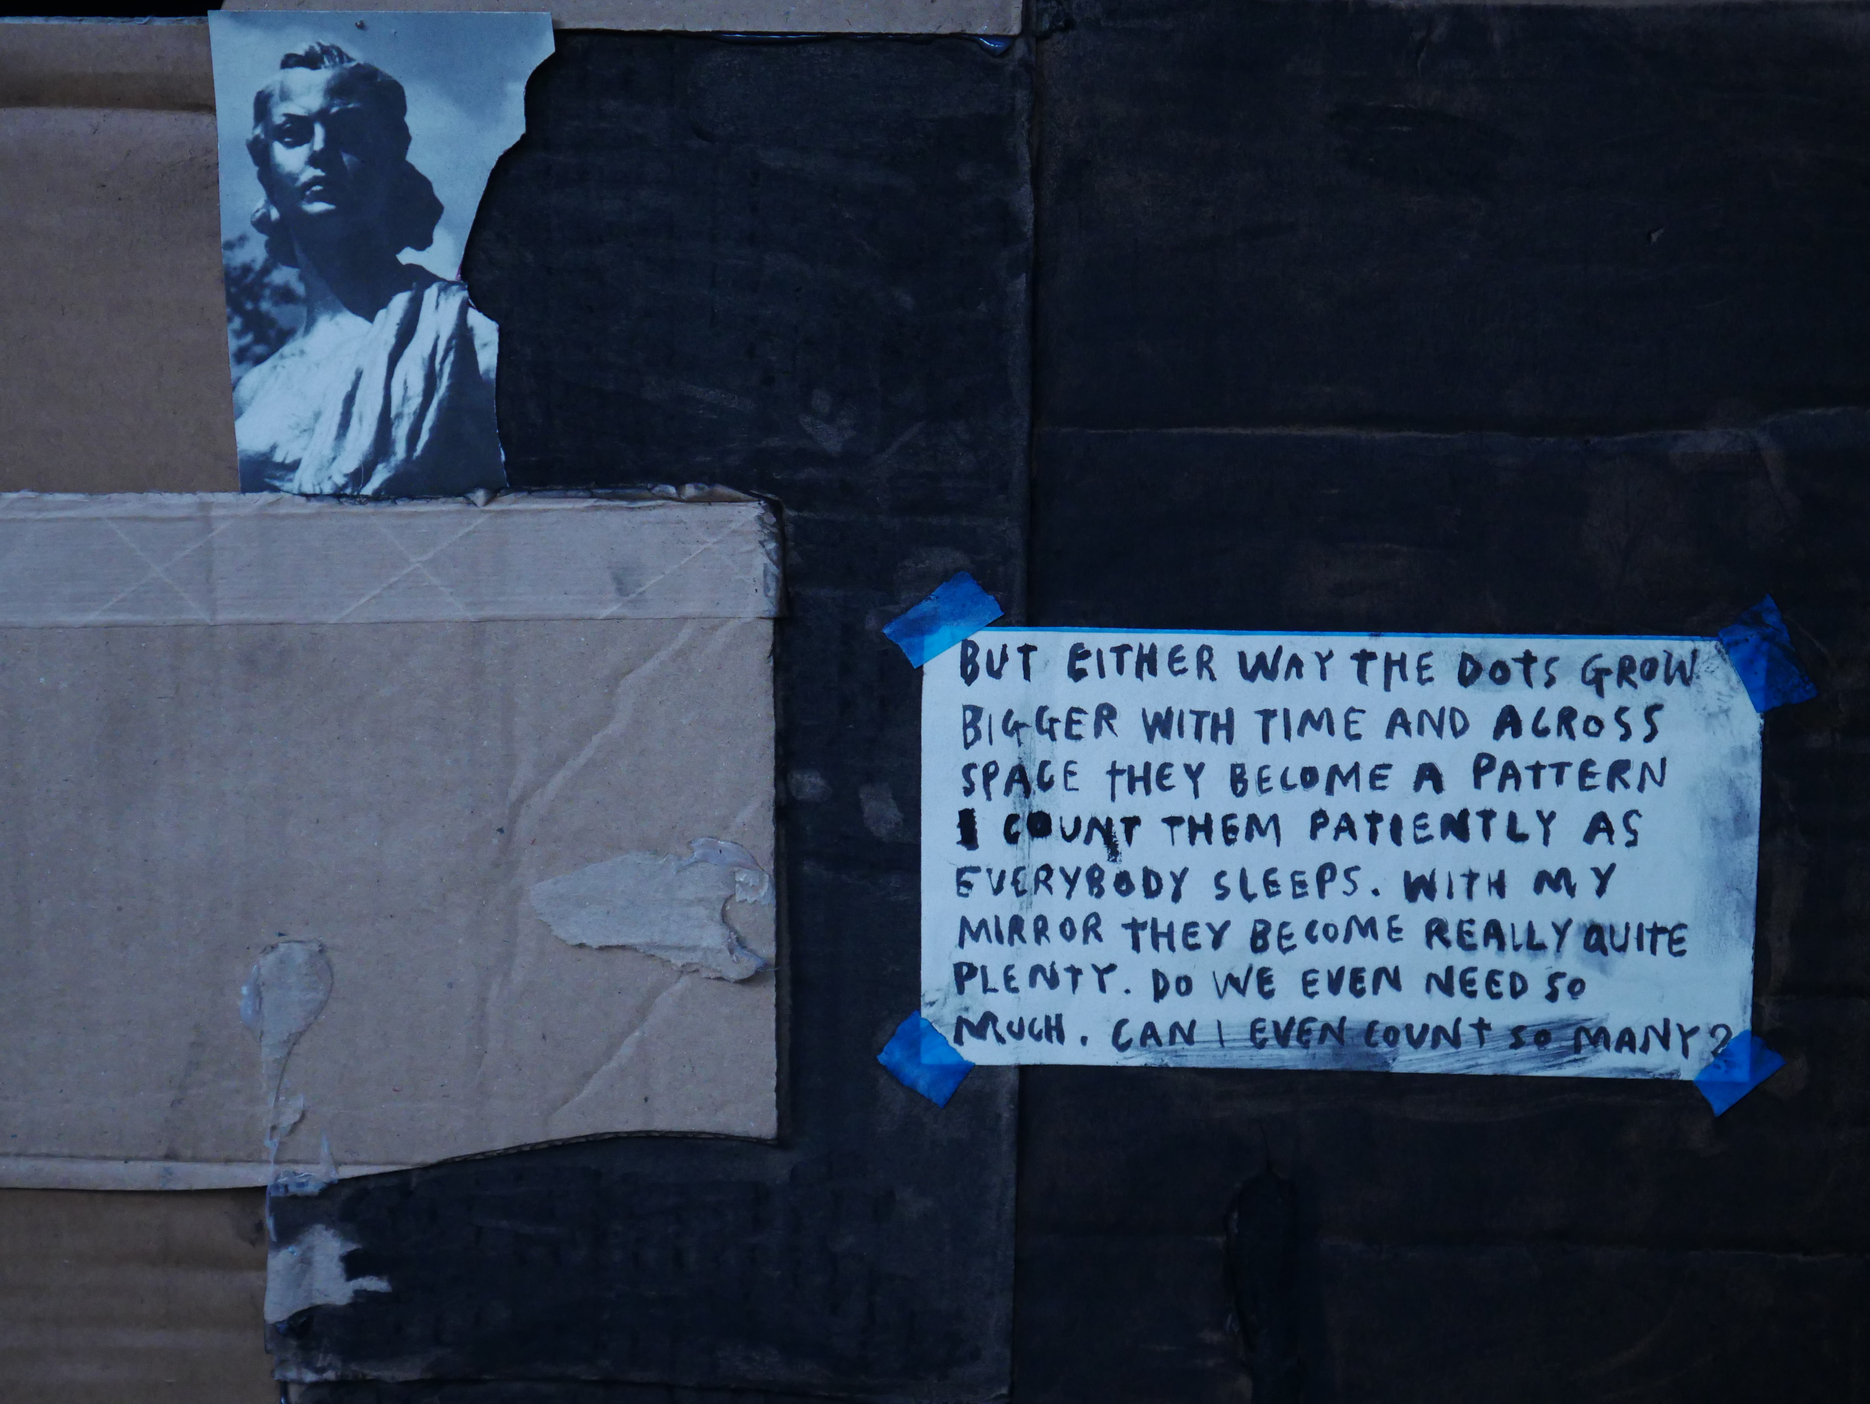 BUT EITHER WAY THE DOTS GROW
BIGGER WITH TIME AND ACROSS
SPACE THEY BECOME A PATTERN
I COUNT THEM PATIENTLY AS
EVERYBODY SLEEPS. WITH MY
MIRROR THEY BECOME REALLY QUITE
PLENTY. DO WE EVEN NEED SO
MUCH. CAN I EVEN COUNT SO MANY?